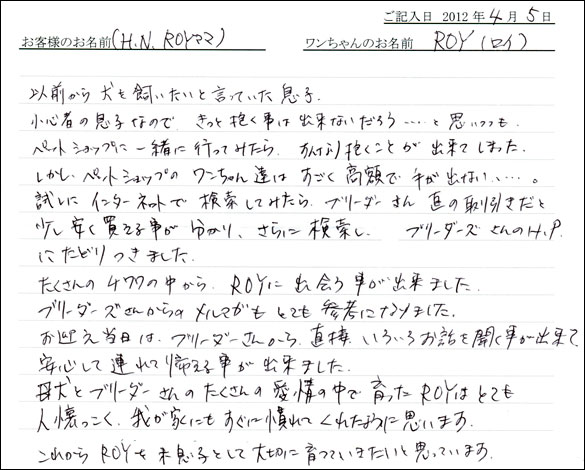 ご記入日 2012年4月5日
お客様のお名前(H.N. ROYママ) ワンちゃんのお名前 ROY(ロイ)
以前から犬を飼いたいと言っていた息子.
小心者の息子なので、きっと抱く事は出来ないだろう……と思いつつも、
ペットショップに一緒に行ってみたら、すんなり抱くことが出来てしまった.
しかし、ペットショップのワンちゃん達はすごく高額で手が出ない……。
試しにインターネットで検索してみたら、ブリーダーさん直の取引きだと
少し安く買える事が分かり、さらに検索し、ブリーダーズさんのH.P.
にたどりつきました.
たくさんのチワワの中から、ROYに出会う事が出来ました.
ブリーダーズさんからのメルマガもとても参考になりました.
お迎え当日は、ブリーダーさんから、直接、いろいろお話を聞く事が出来て
安心して連れて帰える事が出来ました.
母犬とブリーダーさんのたくさんの愛情の中で育ったROYはとても
人懐っこく、我が家にもすぐに慣れてくれたように思います.
これからROYを末息子として大切に育てていきたいと思っています.